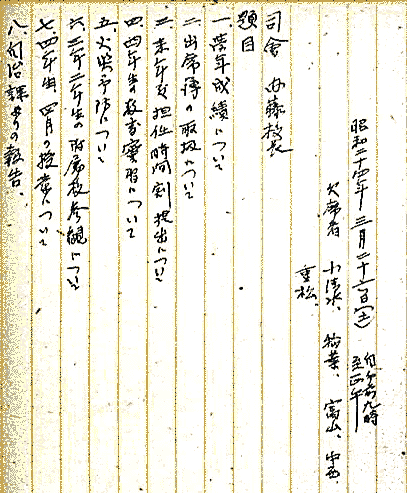 昭和二十四年三月二十六日(土) 自午前九時 至正午
欠席者 小清水、稲葉、富山、中西、
重松、
司会 内藤校長
題目
一、学年成績について
二、出席簿の取扱について
三、来年度担任時間割提出について
四、四年生の教育実習について
五、火災予防について
六、三年二年生の附属校参観について
七、四年生四月の授業について
八、自治課よりの報告、